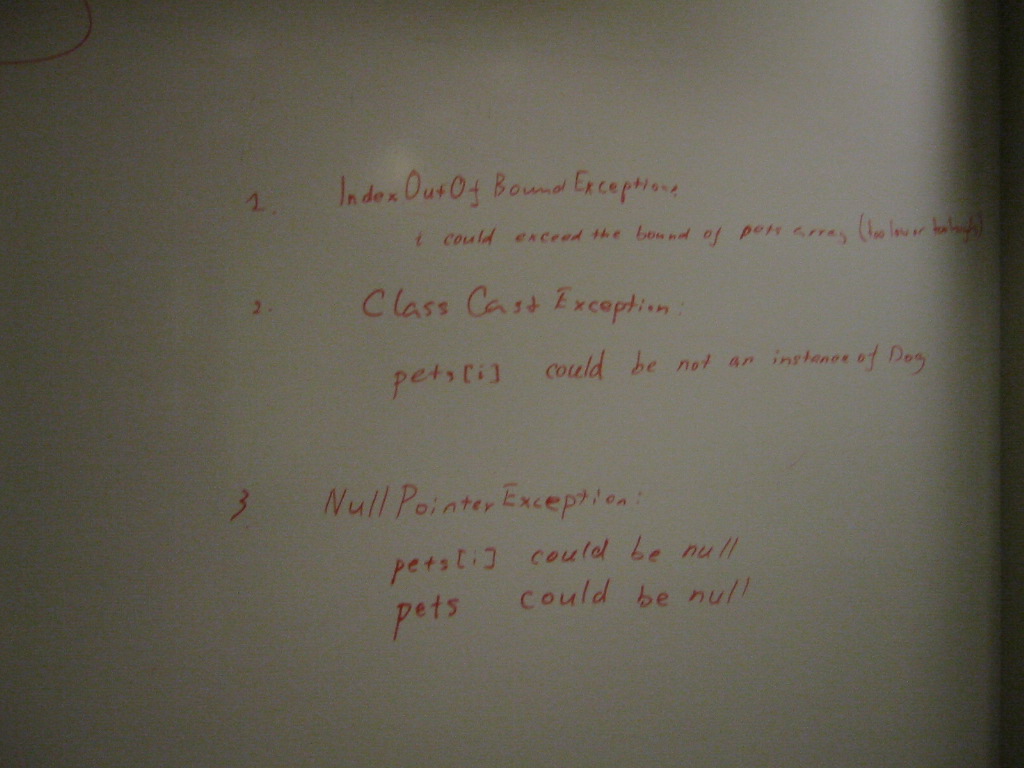 1. IndexOutOfBoundException:
i could exceed the bound of pets array (too low or too high)
2. ClassCastException:
pets[i] could be not an instance of Dog
3 NullPointerException:
pets[i] could be null
pets could be null